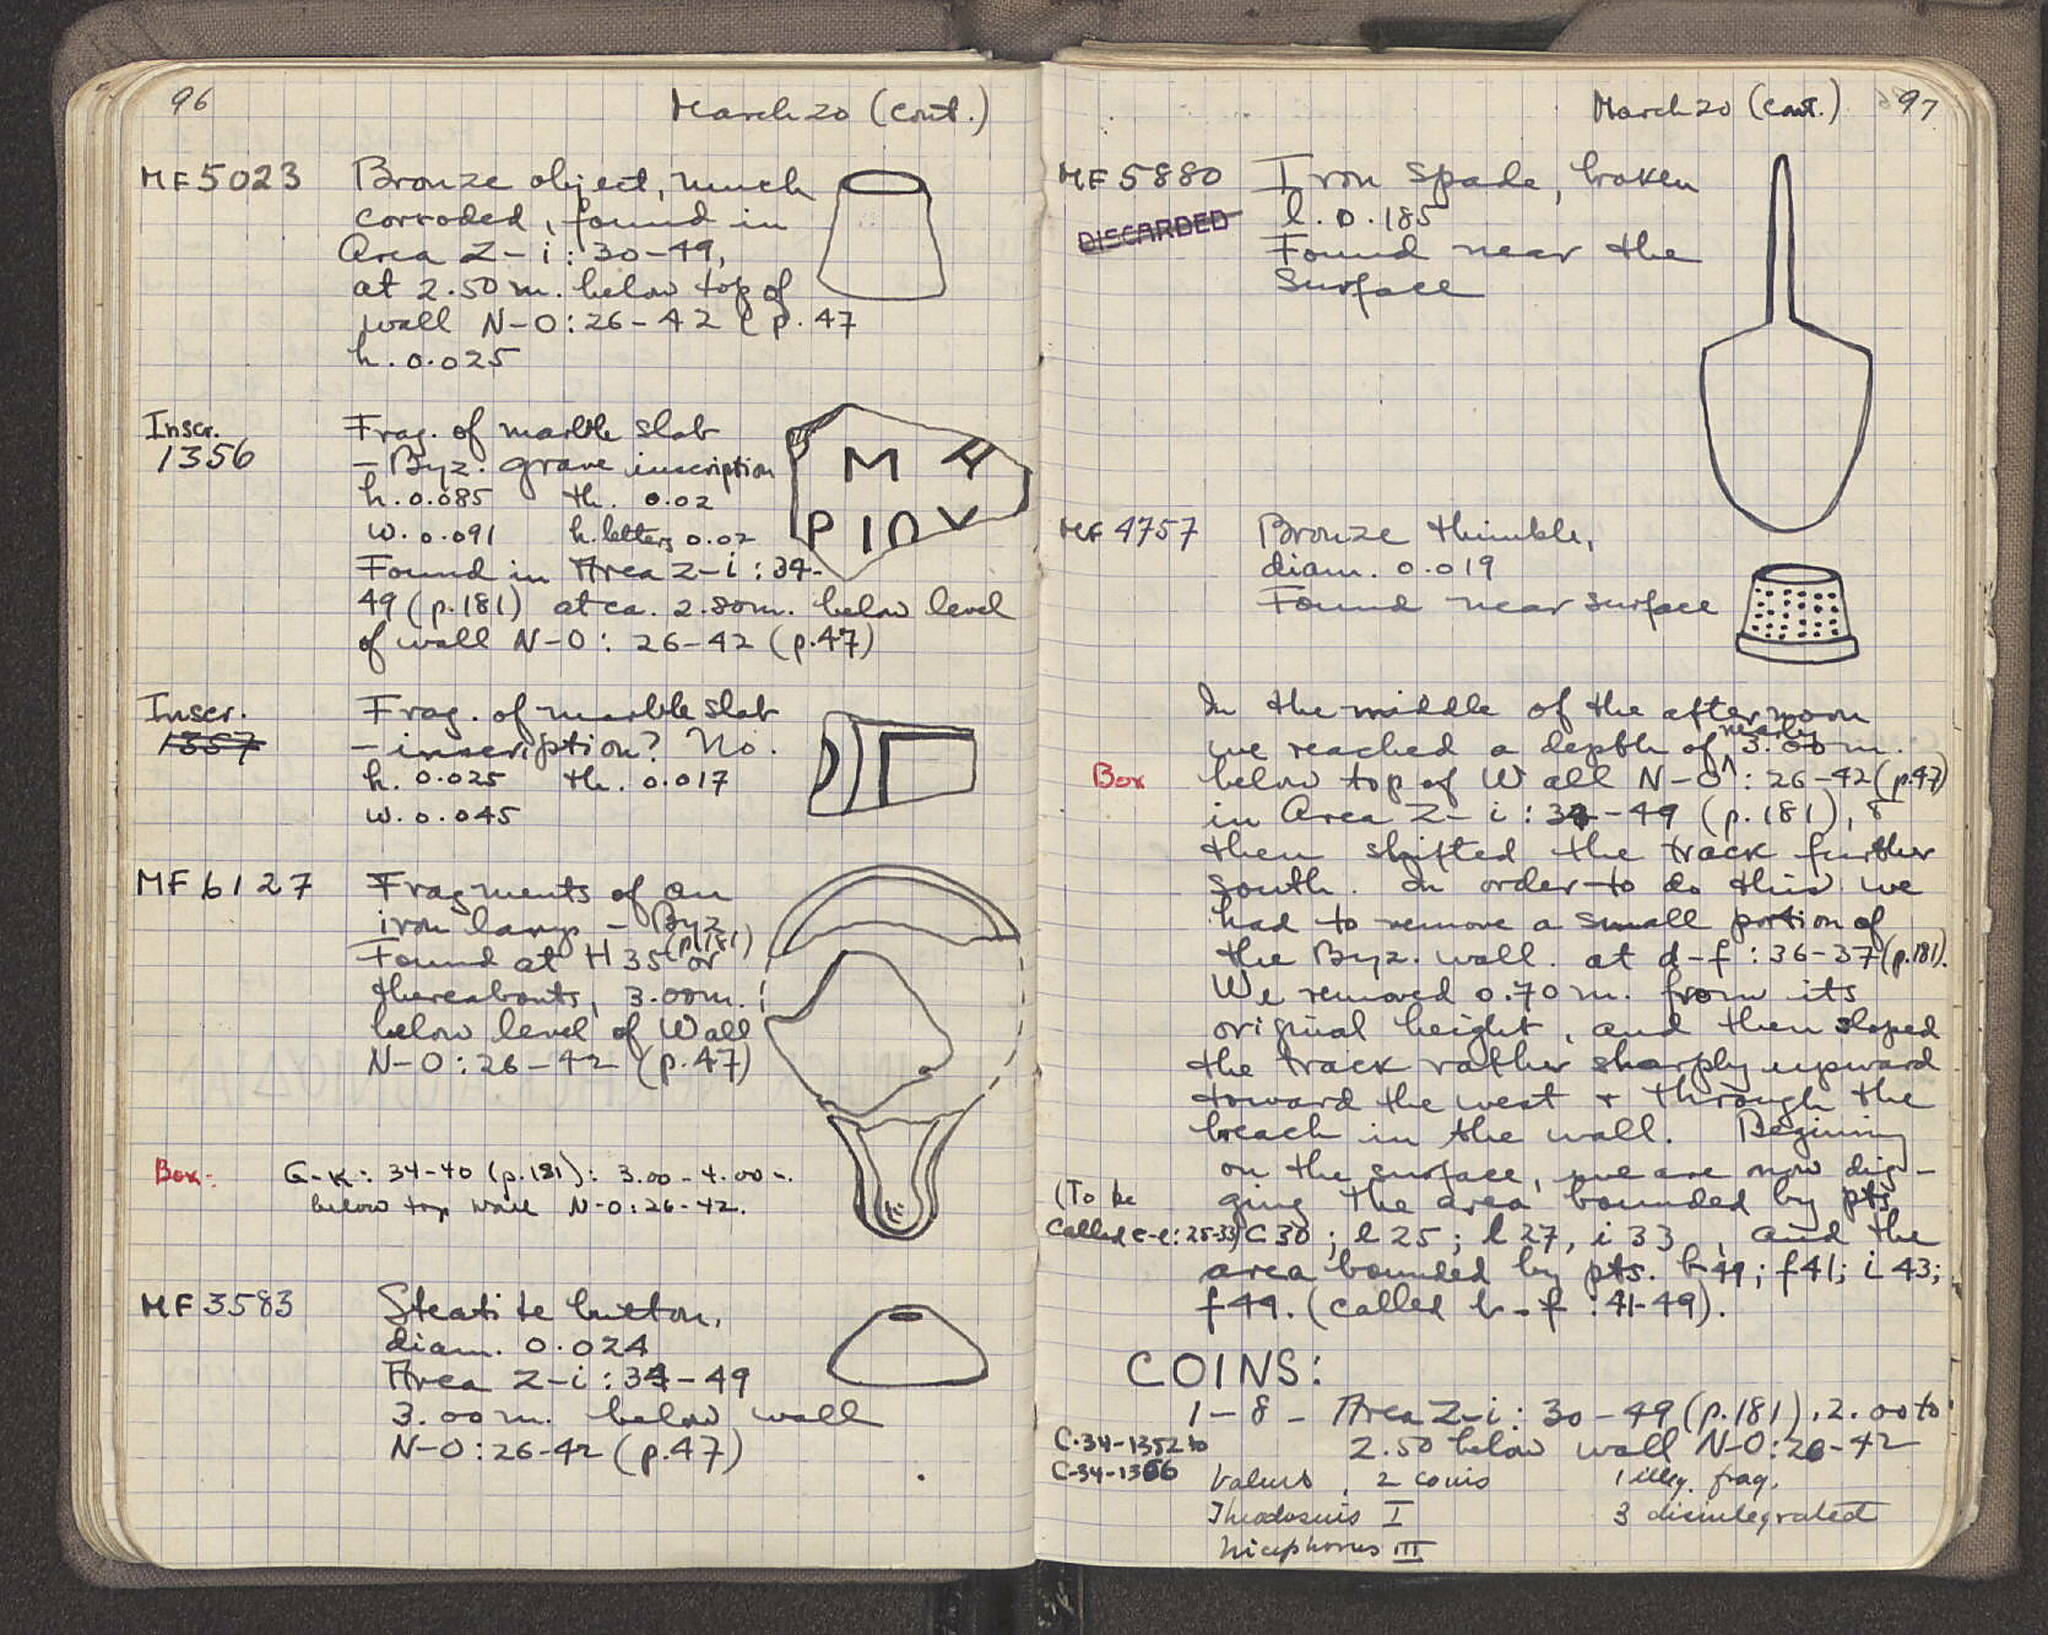 96
March 20 (Cont.)
MF 5023
Bronze object, much
corroded, found in
Area Z-i: 30-49,
at 2.50 m. below top of
wall N-O: 26-42 (p. 47
h. 0.025
Inscr.
1356
Frag. of marble slab
- Byz. grave inscription
h. 0.085 th. 0.02
w. 0.091 h. letters 0.02
Found in Area Z-i: 34-
49 (p. 181) at ca. 2.80 m. below level
of wall N-O: 26-42 (p. 47)
M
P I
Inscr.
1357
Frag. of marble slab
- inscription? No.
h. 0.025 th. 0.017
w. 0.045
MF 6127
Fragments of an
iron lamp - Byz
Found at H 35 (p. 181) or
thereabouts, 3.00 m.
below level of Wall
N-O: 26-42 (p. 47)
Box:
G-K: 34-40 (p. 181): 3.00 - 4.00 -.
below top wall N-O: 26-42.
MF 3583
Steatite button,
diam. 0.024
Area Z-i: 34-49
3.00 m. below wall
N-O: 26-42 (p. 47)
March 20 (Cont.)
97
MF 5880
DISCARDED
Iron Spade, broken
l. 0.185
Found near the
Surface
MF 4757
Bronze thimble,
diam. 0.019
Found near surface
In the middle of the afternoon
we reached a depth of nearly 3.00 m.
Box
below top of Wall N-O: 26-42 (p. 47)
in Area Z-i: 34-49 (p. 181), &
then shifted the track further
South. In order to do this we
had to remove a small portion of
the Byz. wall. at d-f: 36-37 (p. 181).
We removed 0.70 m. from its
original height, and then sloped
the track rather sharply upward
toward the west + through the
breach in the wall. Begining
on the surface, we are now dig-
ging the area bounded by pts
(To be
called c-l: 25-33) C 30; l 25; l 27, i 33, and the
area bounded by pts. b 49; f 41; i 43;
f 49. (called b-f: 41-49).
COINS:
1-8 - Area Z-i: 30-49 (p. 181), 2.00 to
2.50 below wall N-O: 26-42
C-34-1352 to
C-34-1366
Valens, 2 coins
1 illeg. frag.
Theodosius I
3 disintegrated
Nicephorus III